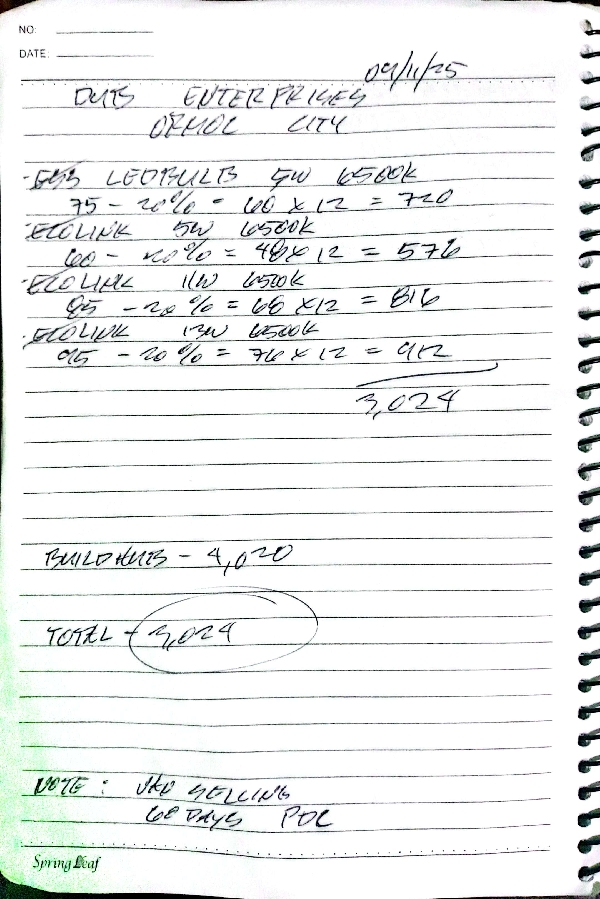 NO:
DATE:
09/11/25
ENTERPRISES
ORMOC CITY
LEDBULB 5W 6500K
75 - 20% = 60 x 12 = 720
ECOLINK 5W 6500K
60 - 20% = 48 x 12 = 576
ECOLINK 11W 6500K
85 - 20% = 68 x 12 = 816
ECOLINK 13W 6500K
95 - 20% = 76 x 12 = 912
3,024
BUILDHUB - 4,020
TOTAL - 3,024
NOTE: SELLING
60 DAYS PDC
Spring Leaf